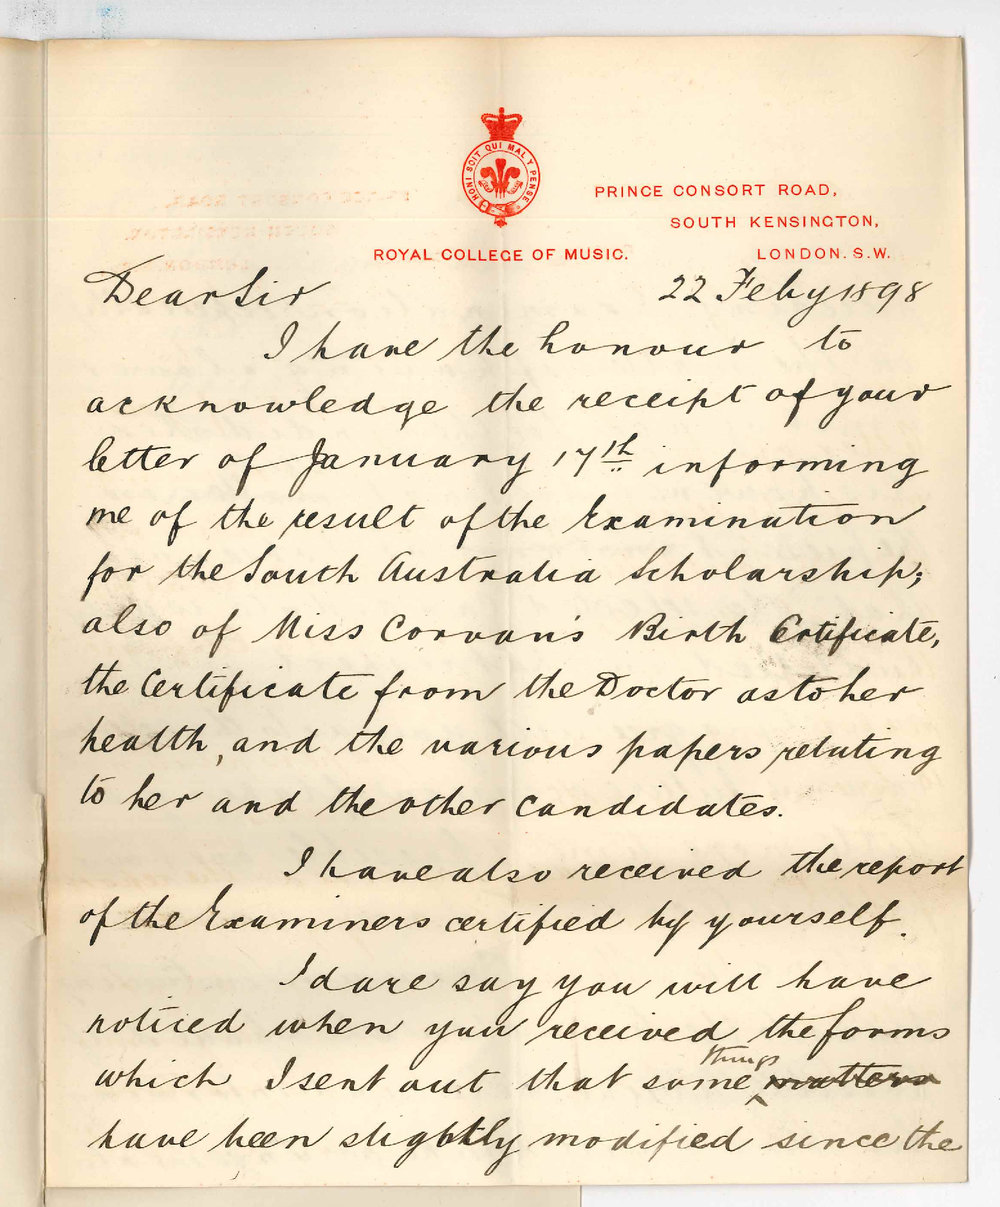 HONI SOIT QUI MAL Y PENSE
PRINCE CONSORT ROAD,
SOUTH KENSINGTON,
ROYAL COLLEGE OF MUSIC. LONDON. S.W.
Dear Sir 22 Feby 1898
I have the honour to
acknowledge the receipt of your
letter of January 17th informing
me of the result of the Examination
for the South Australia Scholarship;
also of Miss Corvan's Birth Certificate,
the Certificate from the Doctor as to her
health, and the various papers relating
to her and the other candidates.
I have also received the report
of the Examiners certified by yourself.
I dare say you will have
noticed when you received the forms
things
which I sent out that some matters
have been slightly modified since the